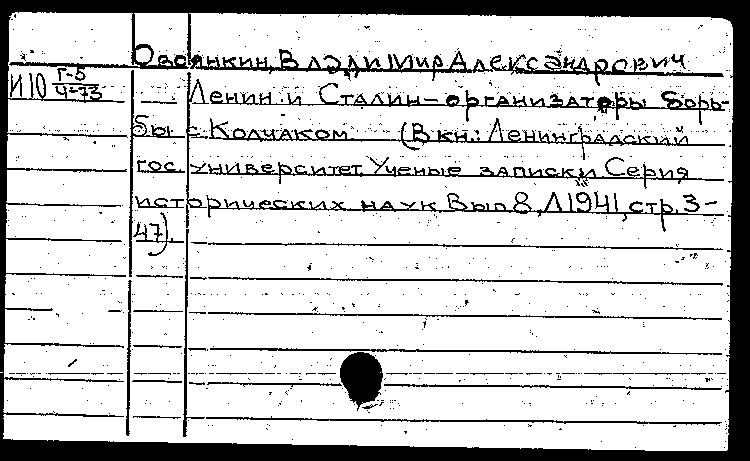 Овсянкин, Владимир Александрович
И10 Г-5
4-73
Ленин и Сталин-организаторы борь-
бы с Колчаком. (В кн.: Ленинградский
гос. университет. Ученые записки. Серия
исторических наук. Вып. 8, Л 1941, стр. 3-
47).